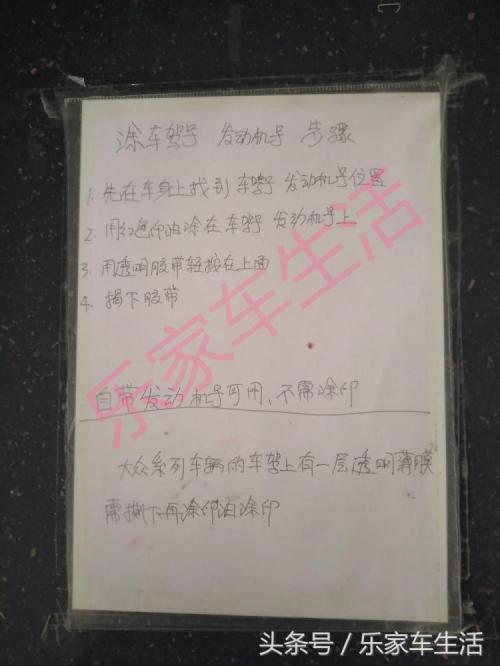 涂车驾号 发动机号 步骤
1. 先在车身上找到 车驾号 发动机号位置
2. 用红色印油涂在 车驾号 发动机号上
3. 用透明胶带轻按在上面
4. 揭下胶带
自带发动机号可用、不需涂印
大众系列车辆的车驾上有一层透明薄膜
需撕下再涂印油涂印
乐家车生活
头条号 / 乐家车生活